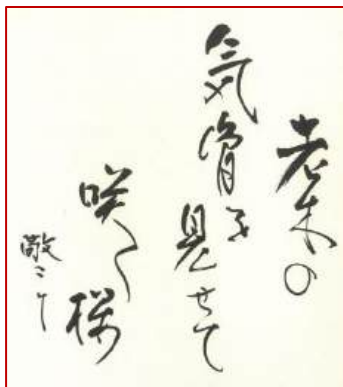 老木の
気骨を見せて
咲く桜